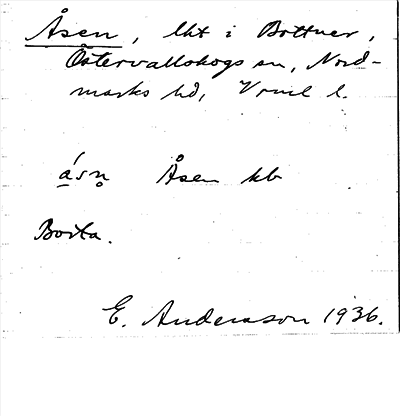 Åsen, lht i Bottner,
Östervallskogs sn, Nord-
marks hd, Vrml l.
ása̱n̥ Åsen kb
Borta.
E. Anderson 1936.